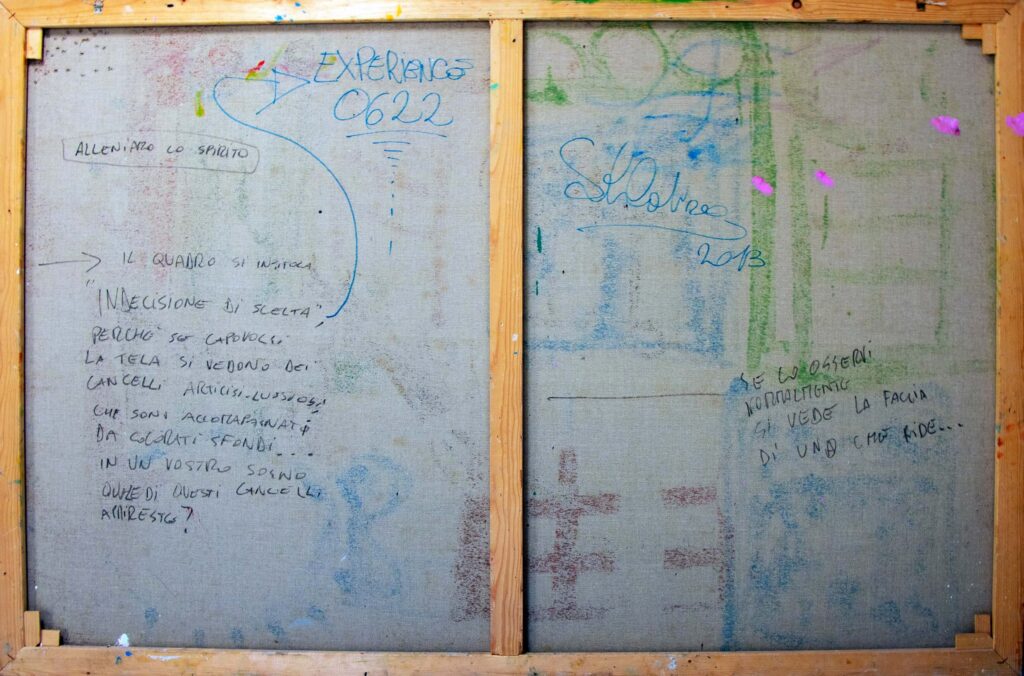 EXPERIENCE
0622
ALLENIAMO LO SPIRITO
IL QUADRO SI INTITOLA
"INDECISIONE DI SCELTA",
PERCHÈ SE CAPOVOLGI
LA TELA SI VEDONO DEI
CANCELLI LUSSUOSI,
CHE SONO ACCOMPAGNATI
DA COLORATI SFONDI....
IN UN VOSTRO SOGNO
QUALE DI QUESTI CANCELLI
APRIRESTE?
2013
SE LO OSSERVI
NORMALMENTE
SI VEDE LA FACCIA
DI UNO CHE RIDE....